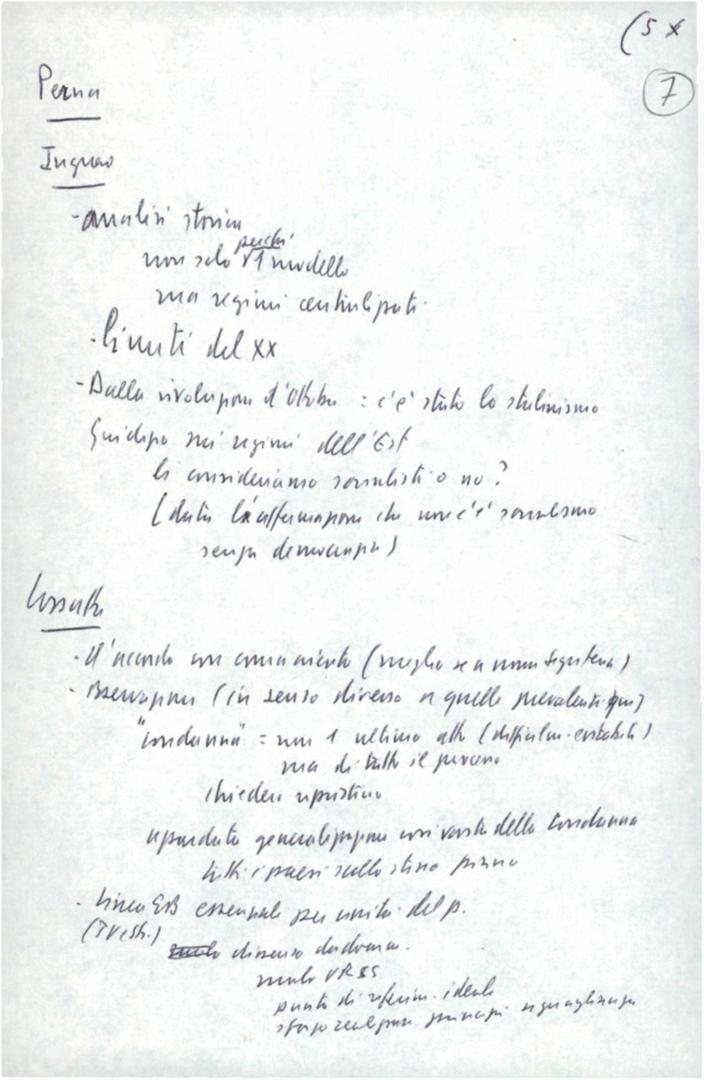 (5 x
7
Perna
Ingrao
- analisi storica
perché
non solo 1 modello
ma regimi centralizzati.
- limiti del XX
- Dalla rivoluzione d'Ottobre = c'è stato lo stalinismo
Giudizio sui regimi dell'Est
li consideriamo socialisti o no?
(data l'affermazione che non c'è socialismo
senza democrazia)
Cossutta
- d'accordo con comunicato (meglio se a nome Segreteria)
- Osservazioni (in senso diverso a quelle prevalenti qui)
"condanna" = non 1 ultimo atto
ma di tutto il processo
chiedere ripristino
generalizzazione della condanna
tutti i paesi sullo stesso piano
- linea EB essenziale per unità del p.
(TV est.)
dissenso
ruolo URSS
punto di riferim. ideale
sforzo realizzare principi uguaglianza